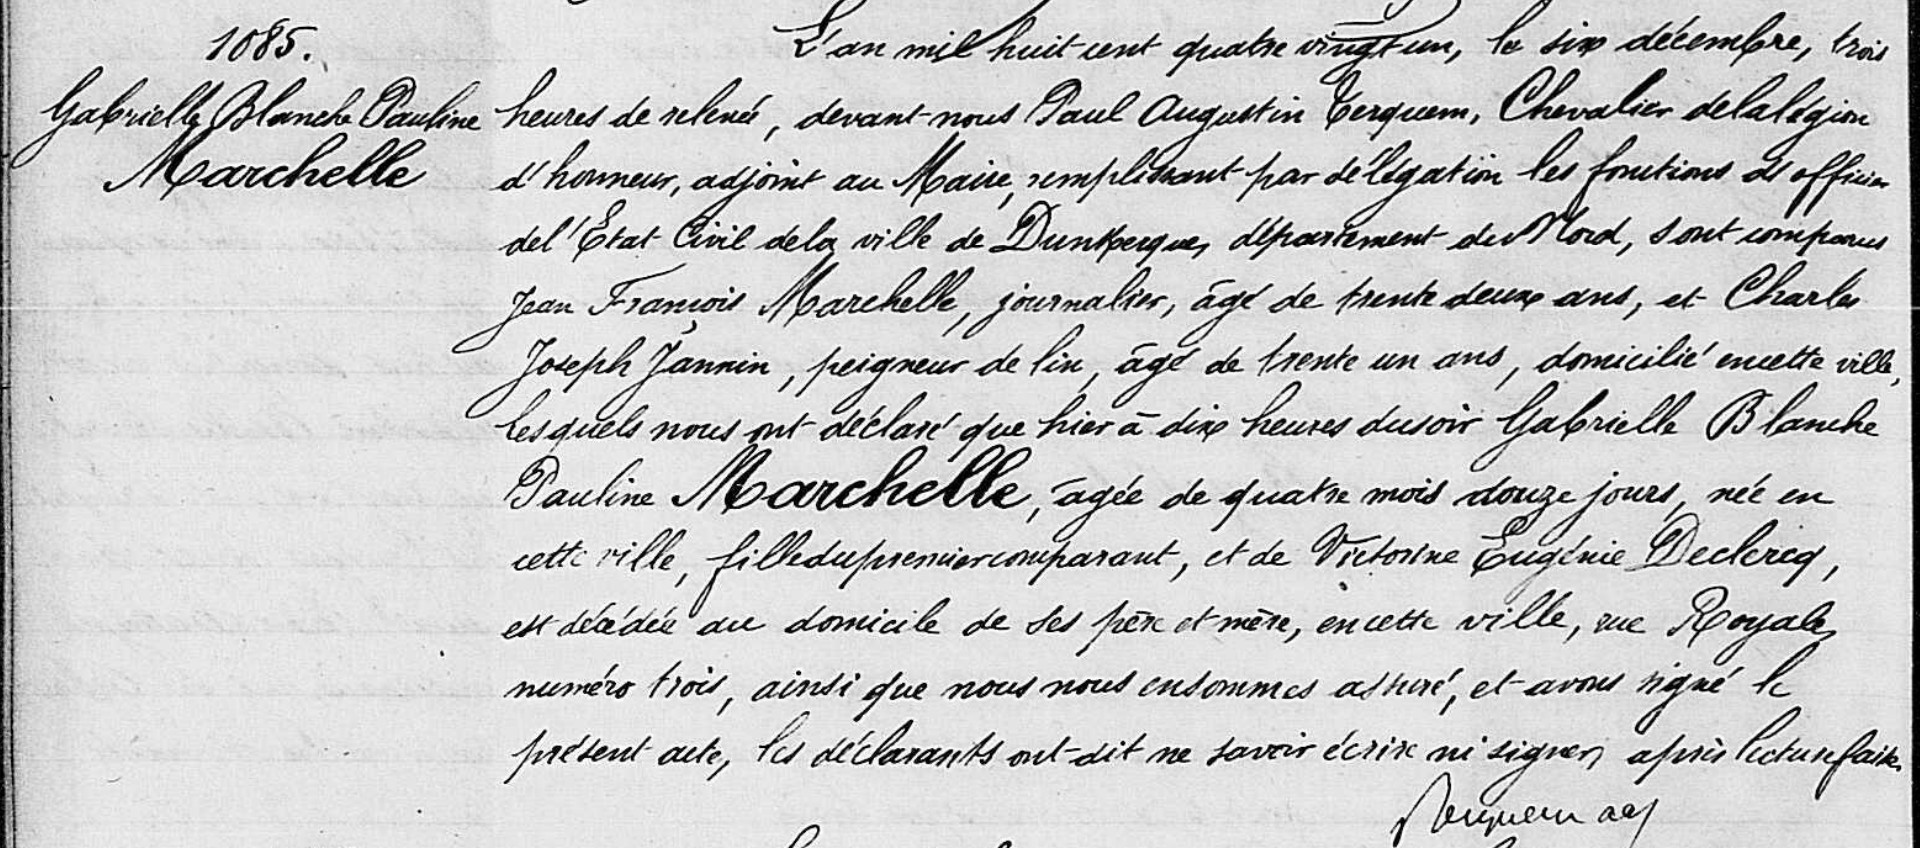 1085.
Gabrielle Blanche Pauline
Marchelle
L'an mil huit cent quatre vingt un, le six décembre, trois
heures de relevée, devant nous Paul Augustin Terquem, Chevalier de la légion
d'honneur, adjoint au Maire, remplissant par délégation les fonctions d'officier
de l'Etat Civil de la ville de Dunkerque, département du Nord, sont comparus
Jean François Marchelle, journalier, âgé de trente deux ans, et Charles
Joseph Jannin, peigneur de lin, âgé de trente un ans, domicilié en cette ville,
lesquels nous ont déclaré que hier à dix heures du soir Gabrielle Blanche
Pauline Marchelle, âgée de quatre mois douze jours, née en
cette ville, fille du premier comparant, et de Victorine Eugénie Declercq,
est décédée au domicile de ses père et mère, en cette ville, rue Royale,
numéro trois, ainsi que nous nous en sommes assuré, et avons signé le
présent acte, les déclarants ont dit ne savoir écrire ni signer, après lecture faite.
Terquem adj